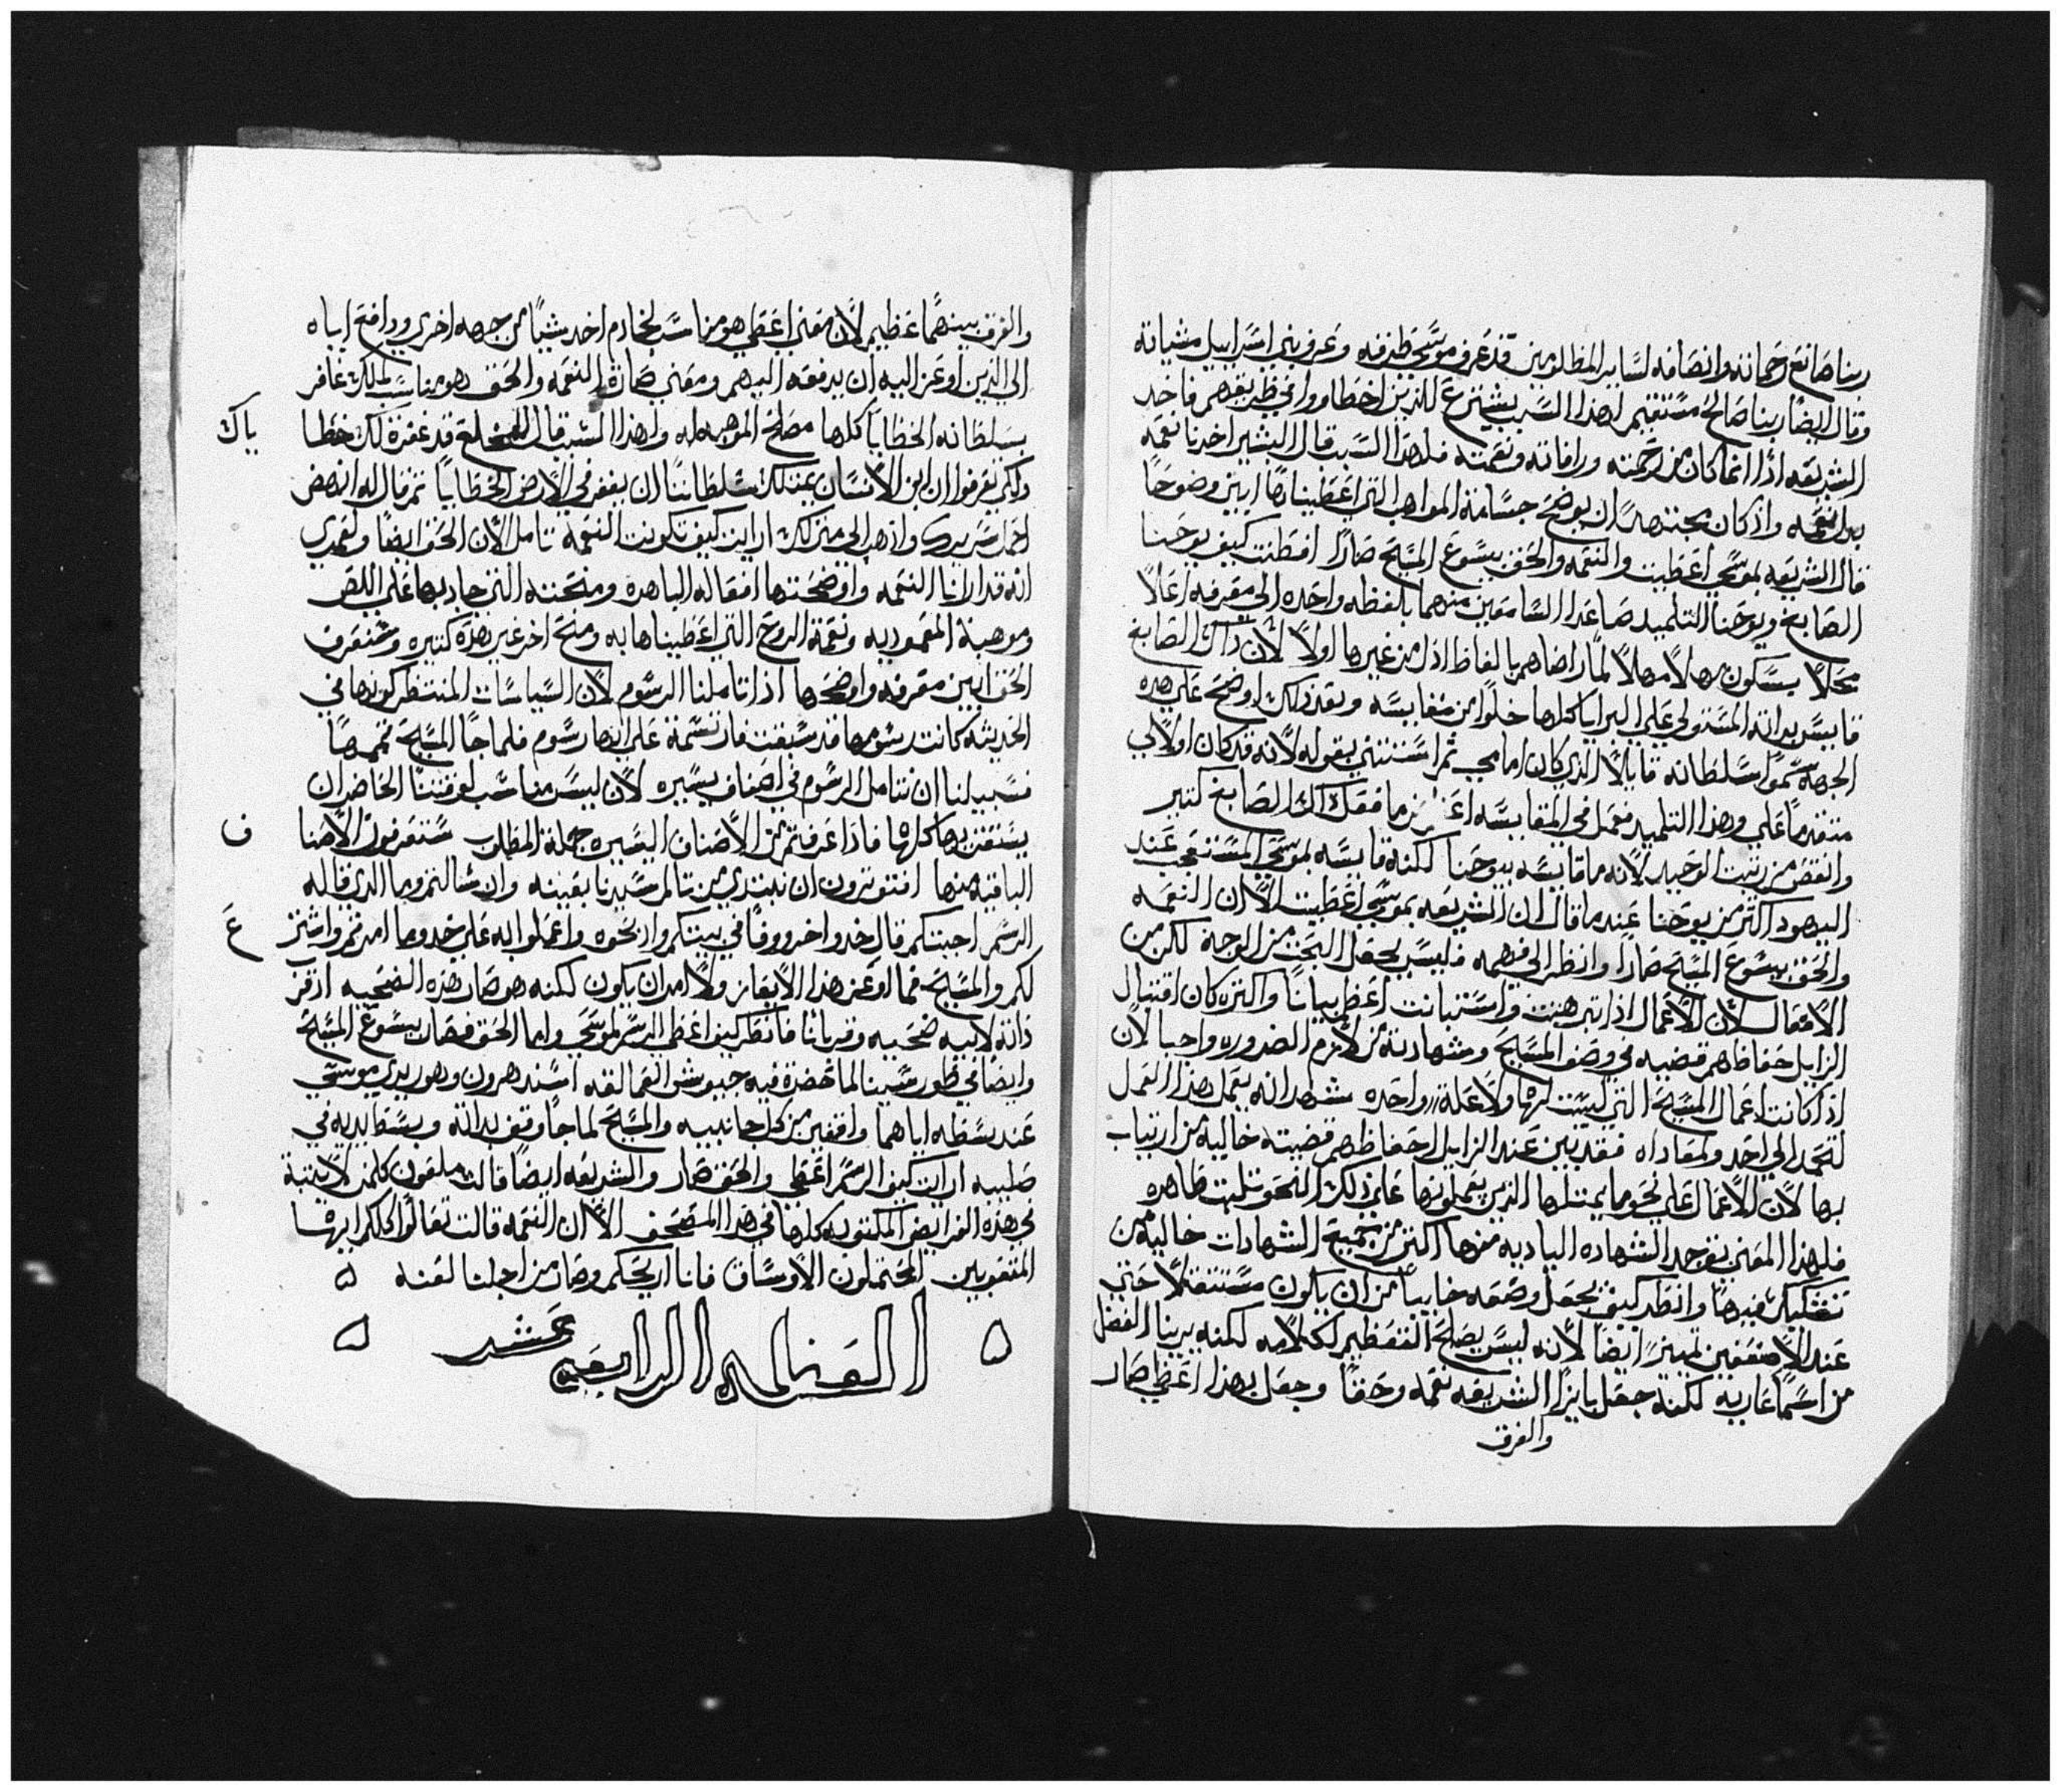 ربنا صانع رحماته وانصافه لساير المظلومين قد عرف موسى طرقه وعرف بني اسراييل مشياته
وقال ايضا ربنا صالح مستقيم لهذا السبب يشترع للذين اخطاوا في طريقهم فاخد
الشريعه اذا انما كان من رحمته ورافاته ونعمته فلهذا السبب قال البشير اخدنا نعمه
بدل نعمه واذ كان مجتهدا ان يوضح جسامة المواهب التي اعطيناها ابين وضوحا
قال الشريعه بموسى اعطيت والنعمه والحق بيسوع المسيح صارا افطنت كيف يوحنا
الصابغ ويوحنا التلميد صاعدا السامعين منهما بلفظه واحده الى معرفه اعلا
محلا بسكون لها لا مهلا لما راضاهم بالفاظ ادل من غيرها اولا لان داك الصابغ
قايس بداته المستولي على البرايا كلها خلوا من مقايسه وبعد ذلك اوضح على هده
الجهة سموا سلطانه قايلا الذي كان امامي ثم استثنى بقوله لانه قد كان اولا لي
متقدما علي وهذا التلميد فعمل في المقايسه اعز من ما فعل داك الصابغ كثير
وانقص من رتبت الوحيد لانه ما قايسه بيوحنا لكنه قايسه بموسى المستعجب عند
اليهود اكثر من يوحنا عندما قال ان الشريعه بموسى اعطيت الا ان النعمه
والحق بيسوع المسيح صارا وانظر الى فهمه فليس يجعل البحث من الوجه لكن من
الافعال لان الاعمال اذا تبرهنت واستبانت اعظم بيانا واكثره كان اقتبال
الزايل حفاظهم قضيه في وصف المسيح وشهادته من لازم الضروره واجبا لان
اذ كانت اعمال المسيح التي ليست لها ولا علة واحده شهد انه يعمل هذا العمل
لتحمد الى احد ولمعاداه فقد بين عند الزايل احفاظهم قضيته خاليه من ارتياب
بها لان الاعمال على نحو ما يمتثلها الذين يعملونها على ذلك النحو تثلبت ظاهره
فلهذا المعنى توجد الشهاده الباديه منها اكثر من جميع الشهادات خاليه من
تشكيك فيها وانظر كيف يجعل وصفه خايبا من ان يكون مستثقلا حتى
عند الاضعفين تمييزا ايضا لانه ليس يصلح التفظيم لكلامه لكنه يرينا الفضل
من اسما عاريه لكنه جعل بازا الشريعه نعمه وحقا وجعل بهذا اعطي صار
والفرق
والفرق بينهما عظيم لان معنى اعطي هو مناسب لخادم اخد شيا من جهه اخرى ودافع اياه
الى الذين اوعز اليه ان يدفعه اليهم ومعنى صارة النعمه والحق هو مناسب لملك غافر
بسلطانه الخطايا كلها مصلح الموهبه له ولهذا السبب قال للمخلع قد غفرة لك خطا
ياك
ولكي تعرفوا ان ابن الانسان يمتلك سلطانا ان يغفر في الارض الخطايا ثم قال له انهض
احمل سريرك واذهب الى منزلك ارايت كيف تكونت النعمه تامل الان الحق ايضا ولعمري
انه قد ارانا النعمه واوضحتها افعاله الباهره ومنحته التي جاد بها على اللص
وموهبة المعموديه ونعمة الروح التي اعطيناها به ومنح اخر غير هده كتيره وسنعرف
الحق ابين معرفه واوضحها اذا تاملنا الرسوم لان السياسات المنتظر كونها في
الحديثه كانت رسومها قد سبقت فارتسمة على انها رسوم فلما جا المسيح تممها
فسبيلنا ان نتامل الرسوم في اصناف يسيره لان ليس مناسب لوقتنا الحاضر ان
يستقن بها كلها فاذا عرفتم من الاصناف اليسيره جملة المطلوب ستعرفون الاصنا
ف
الباقيه منها افتوترون ان نبتدي من تالم سيدنا بعينه وان شالتموما الدي قاله
الرسم اجبتكم قال خدوا خروفا في بيتكم وادبحوه واعملوا به على حدوما امرتم واشتر
ع
لكم والمسيح فما اوعز هذا الايعاز ولا امر ان يكون لكنه هو صار هذه الضحيه اذ قر
ذاته لابيه ضحيه وقربانا فانظر كيف اعطي الرسم لموسى واما الحق فصار بيسوع المسيح
وايضا في طور سينا لما نهضة فيه جيوش العمالقه استند هرون وهور يدي موسى
عند بسطه اياهما واقفين من كل جانبيه والمسيح لما جا وقف بداته وبسط يديه في
صليبه ارايت كيف الرسم اعطي والحق صار والشريعه ايضا قالت ملعون كلمن لا يثبة
في هذه الفرايض المكتوبه كلها في هذا المصحف الا ان النعمه قالت تعالوا كلكم ايها
المتعوبين المحتملون الاوساق فانا اريحكم وصار من اجلنا لعنه ه
ه المقاله الرابعه عشر ه